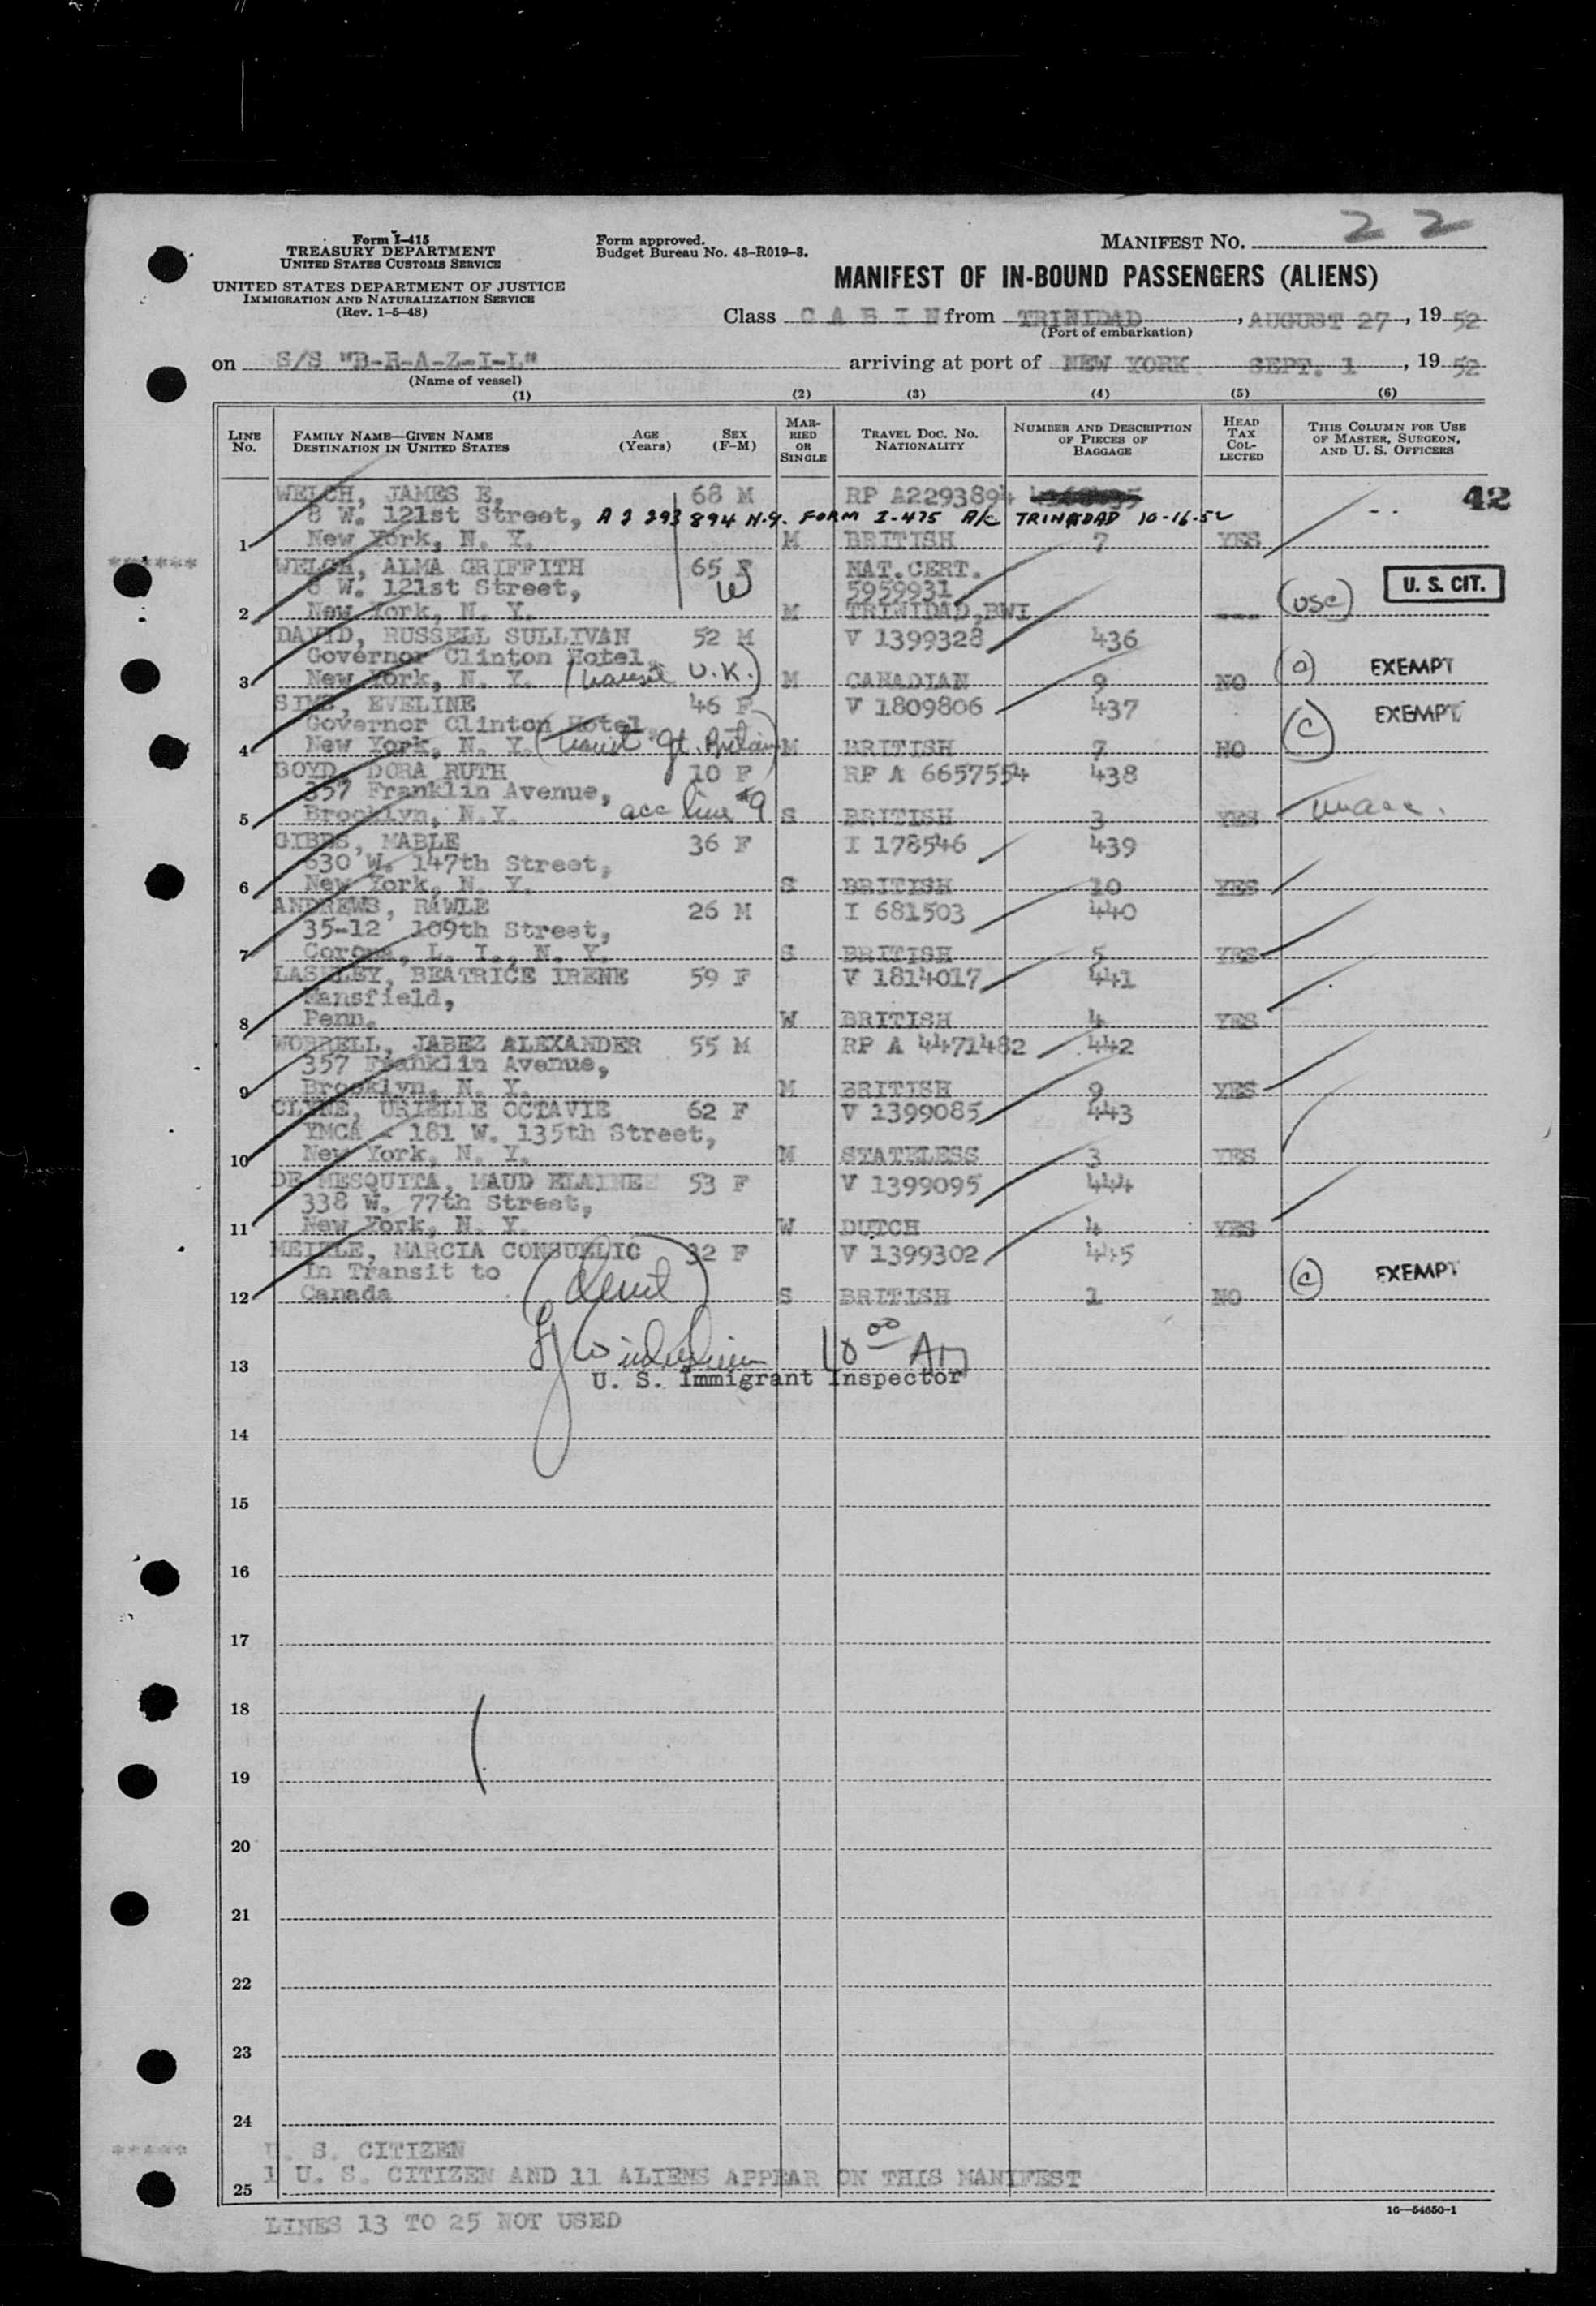 Form I-415
TREASURY DEPARTMENT
UNITED STATES CUSTOMS SERVICE
UNITED STATES DEPARTMENT OF JUSTICE
IMMIGRATION AND NATURALIZATION SERVICE
(Rev. 1-5-48)
Form approved.
Budget Bureau No. 43-R019-3.
MANIFEST NO. 22
MANIFEST OF IN-BOUND PASSENGERS (ALIENS)
Class C A B I N from TRINIDAD, AUGUST 27, 1952
(Port of embarkation)
on S/S "B-R-A-Z-I-L" arriving at port of NEW YORK SEPT. 1, 1952
(Name of vessel)
(1) (2) (3) (4) (5) (6)
LINE NO.
FAMILY NAME—GIVEN NAME
DESTINATION IN UNITED STATES
AGE (Years)
SEX (F-M)
MARRIED OR SINGLE
TRAVEL DOC. No.
NATIONALITY
NUMBER AND DESCRIPTION OF PIECES OF BAGGAGE
HEAD TAX COLLECTED
THIS COLUMN FOR USE OF MASTER, SURGEON, AND U. S. OFFICERS
WELCH, JAMES E. 68 M RP A2293894 42
8 W. 121st Street, A2 293 894 N.Y. FORM I-475 A/C TRINIDAD 10-16-52
1 New York, N. Y. M BRITISH 7 YES
****** WELCH, ALMA GRIFFITH 65 F NAT.CERT.
8 W. 121st Street, W 5959931 (USC) U. S. CIT.
2 New York, N. Y. M TRINIDAD,BWI ---
DAVID, RUSSELL SULLIVAN 52 M V 1399328 436
Governor Clinton Hotel,
3 New York, N. Y. (transit U.K.) M CANADIAN 9 NO EXEMPT
SIMS, EVELINE 46 F V 1809806 437
Governor Clinton Hotel, (C) EXEMPT
4 New York, N. Y. (transit Gt. Britain) M BRITISH 7 NO
BOYD, DORA RUTH 10 F RP A 6657554 438
357 Franklin Avenue,
5 Brooklyn, N.Y. acc line #9 S BRITISH 3 YES
GIBBS, MABLE 36 F I 178546 439
630 W. 147th Street,
6 New York, N. Y. S BRITISH 10 YES
ANDREWS, RAWLE 26 M I 681503 440
35-12 109th Street,
7 Corona, L. I., N. Y. S BRITISH 5 YES
LASHLEY, BEATRICE IRENE 59 F V 1814017 441
Mansfield,
8 Penn. W BRITISH 4 YES
WORRELL, JABEZ ALEXANDER 55 M RP A 4471482 442
357 Franklin Avenue,
9 Brooklyn, N. Y. M BRITISH 9 YES
CLYNE, URIELLE OCTAVIE 62 F V 1399085 443
YMCA - 181 W. 135th Street,
10 New York, N. Y. M STATELESS 3 YES
DE MESQUITA, MAUD ELAINE 53 F V 1399095 444
338 W. 77th Street,
11 New York, N. Y. W DUTCH 4 YES
MEIKLE, MARCIA CONSUELIC 32 F V 1399302 445
In Transit to (C) EXEMPT
12 Canada S BRITISH 1 NO
13 10 00 AM
U. S. Immigrant Inspector
14
15
16
17
18
19
20
21
22
23
24
***** U. S. CITIZEN
25 1 U. S. CITIZEN AND 11 ALIENS APPEAR ON THIS MANIFEST
16—54650-1
LINES 13 TO 25 NOT USED